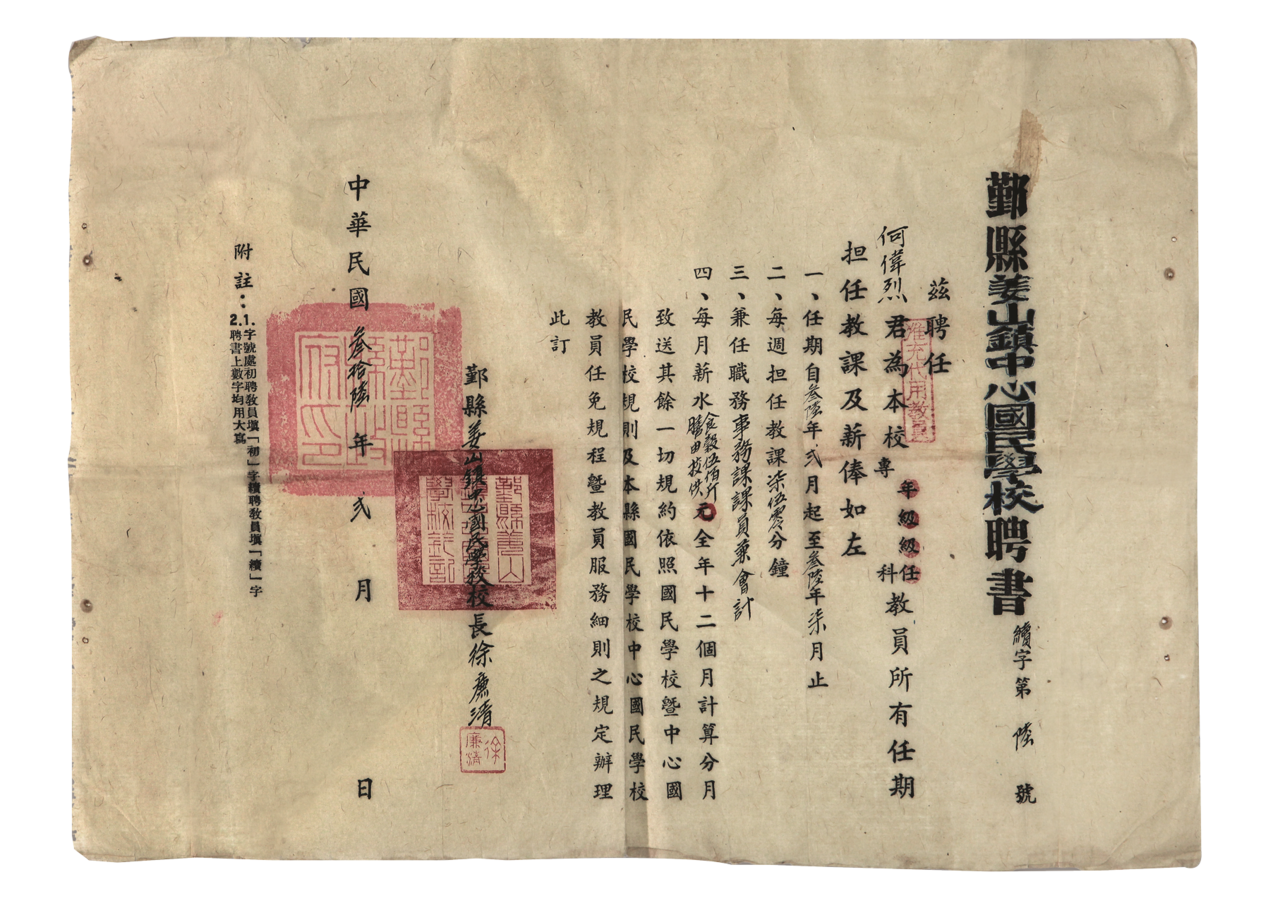 鄞縣姜山鎮中心國民學校聘書
續字第陸號
茲聘任
何偉烈君為本校專科年級級任教員所有任期
准充代用教員
担任教課及薪俸如左
一、任期自叁陸年弍月起至叁陸年柒月止
二、每週担任教課柒伍零分鐘
三、兼任職務事務課課員兼會計
四、每月薪水食穀伍佰斤膳由校供元全年十二個月計算分月
致送其餘一切規約依照國民學校暨中心國
民學校規則及本縣國民學校中心國民學校
教員任免規程暨教員服務細則之規定辦理
此訂
鄞縣姜山鎮中心國民學校校長徐廉清
徐廉清
鄞縣姜山
學校鈐記
中華民國叁拾陸年弍月日
鄞縣
府印
附註：
1.字號處初聘教員填「初」字續聘教員填「續」字
2.聘書上數字均用大寫